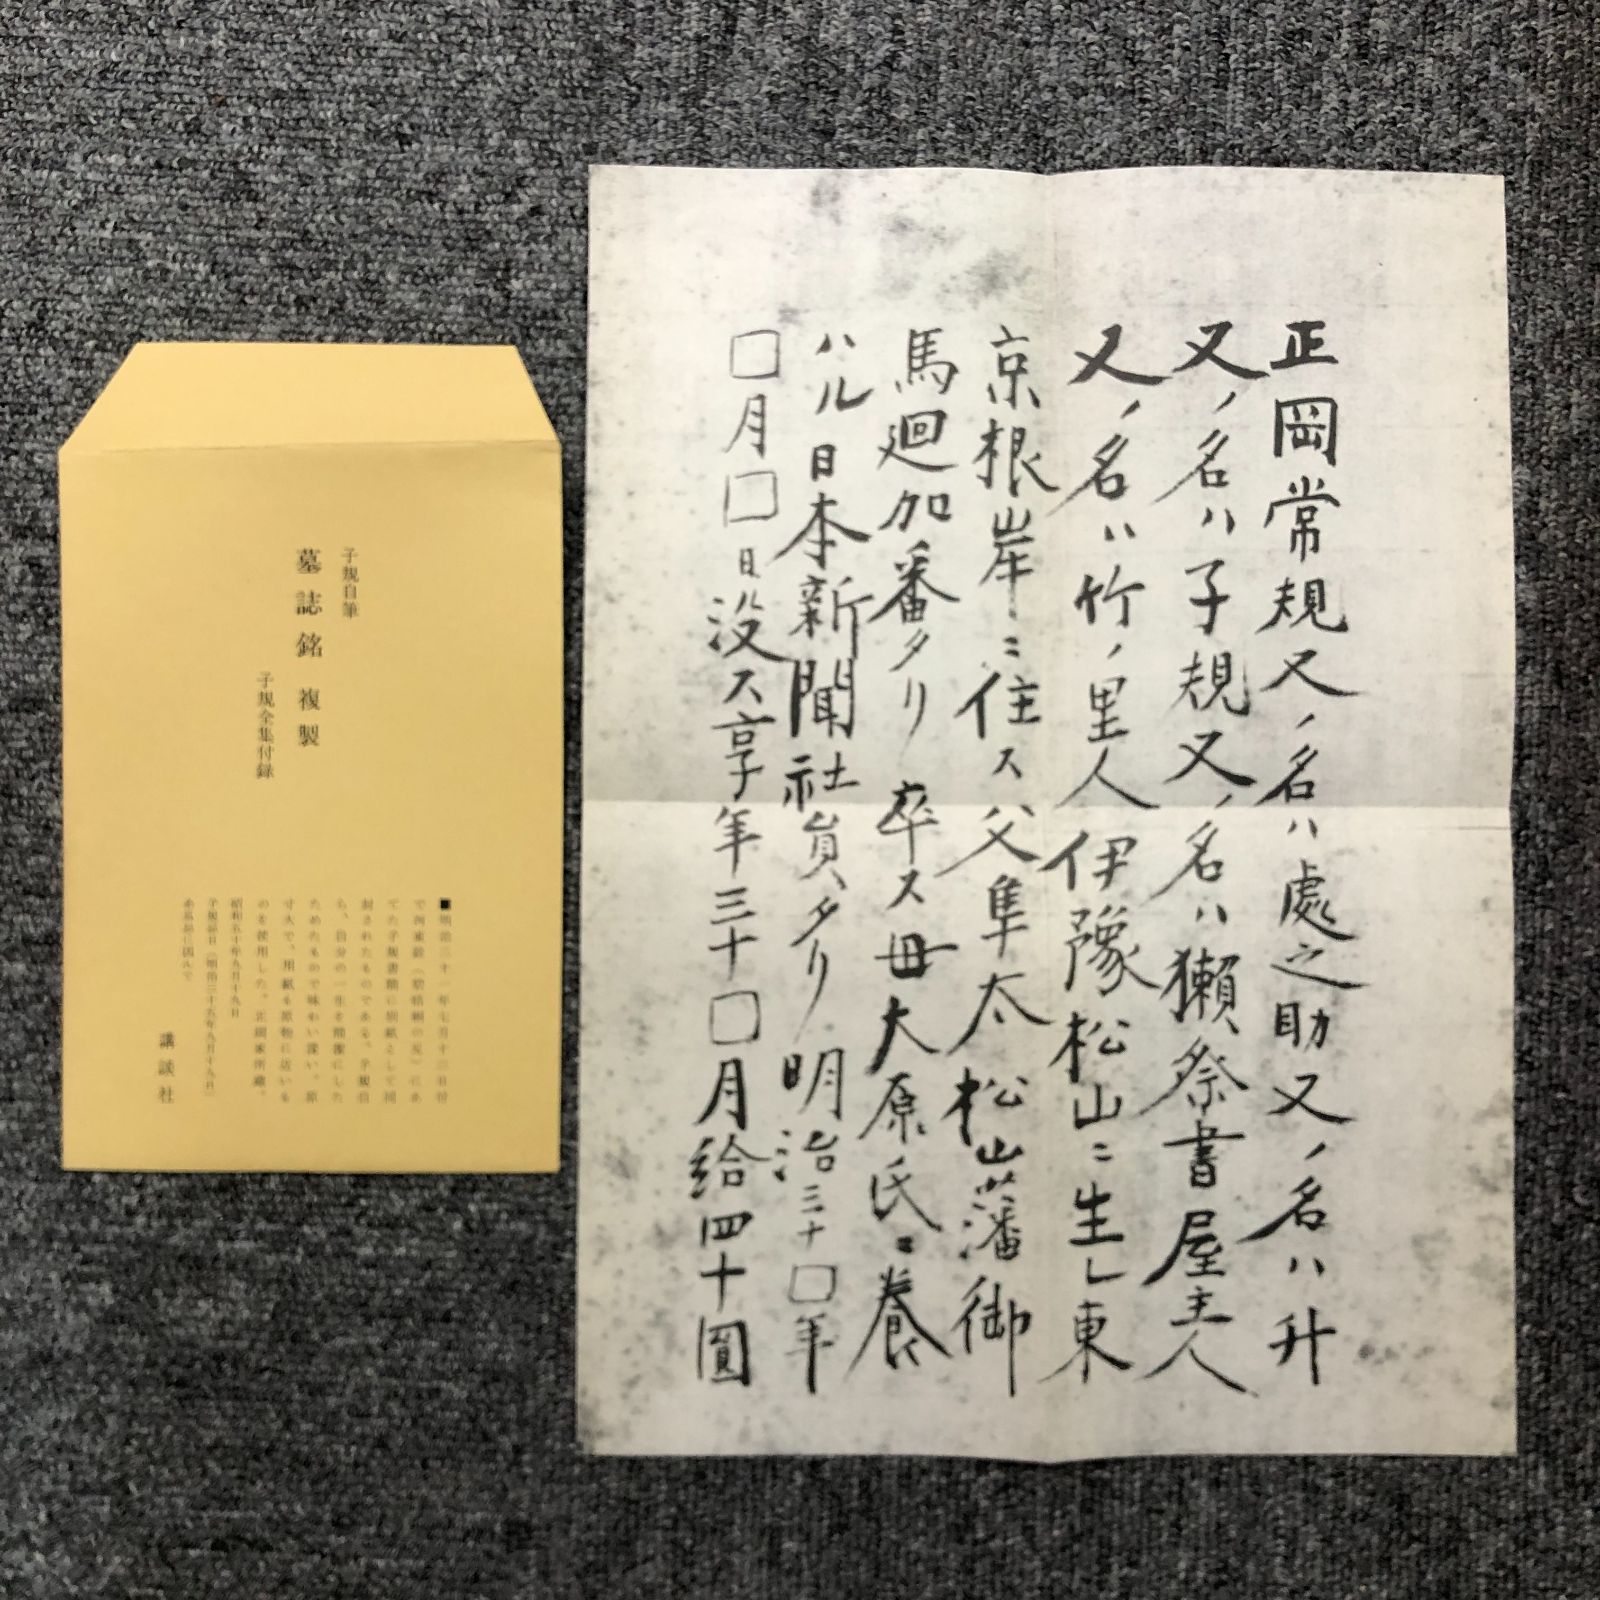 子規自筆
墓誌銘 複製
子規全集付録
■明治三十一年七月十三日付
で河東銓（碧梧桐の兄）にあ
てた子規書簡に別紙として同
封されたものである。子規自
ら、自分の一生を簡潔にした
ためたもので味わい深い。原
寸大で、用紙も原物に近いも
のを使用した。正岡家所蔵。
昭和五十年九月十九日
子規忌日（明治三十五年九月十九日）
講談社
正岡常規又ノ名ハ處之助又ノ名ハ升
又ノ名ハ子規又ノ名ハ獺祭書屋主人
又ノ名ハ竹ノ里人伊豫松山ニ生レ東
京根岸ニ住ス父隼太松山藩御
馬廻加番タリ卒ス母大原氏ニ養
ハル日本新聞社員タリ明治三十□年
□月□日没ス享年三十□月給四十圓